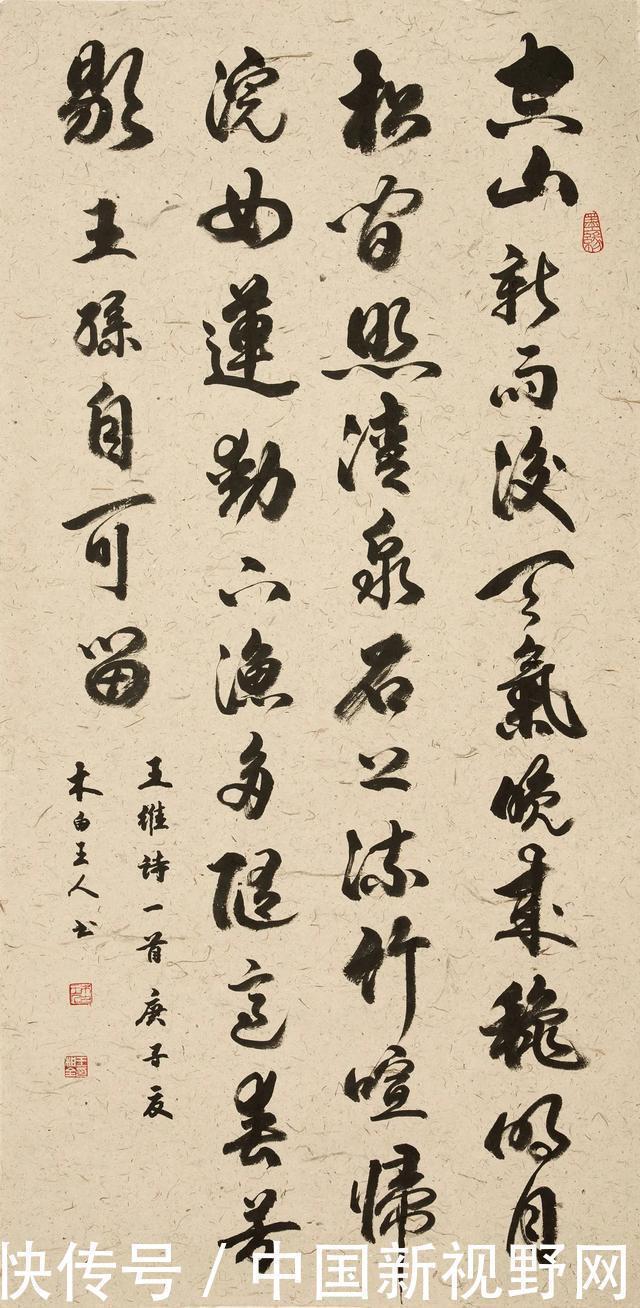 空山新雨後天氣晚來秋明月
松間照清泉石上流竹喧歸
浣女蓮動下漁舟隨意春芳
歇王孫自可留
王維詩一首庚子夏
木由主人书
快传号 / 中国新视野网